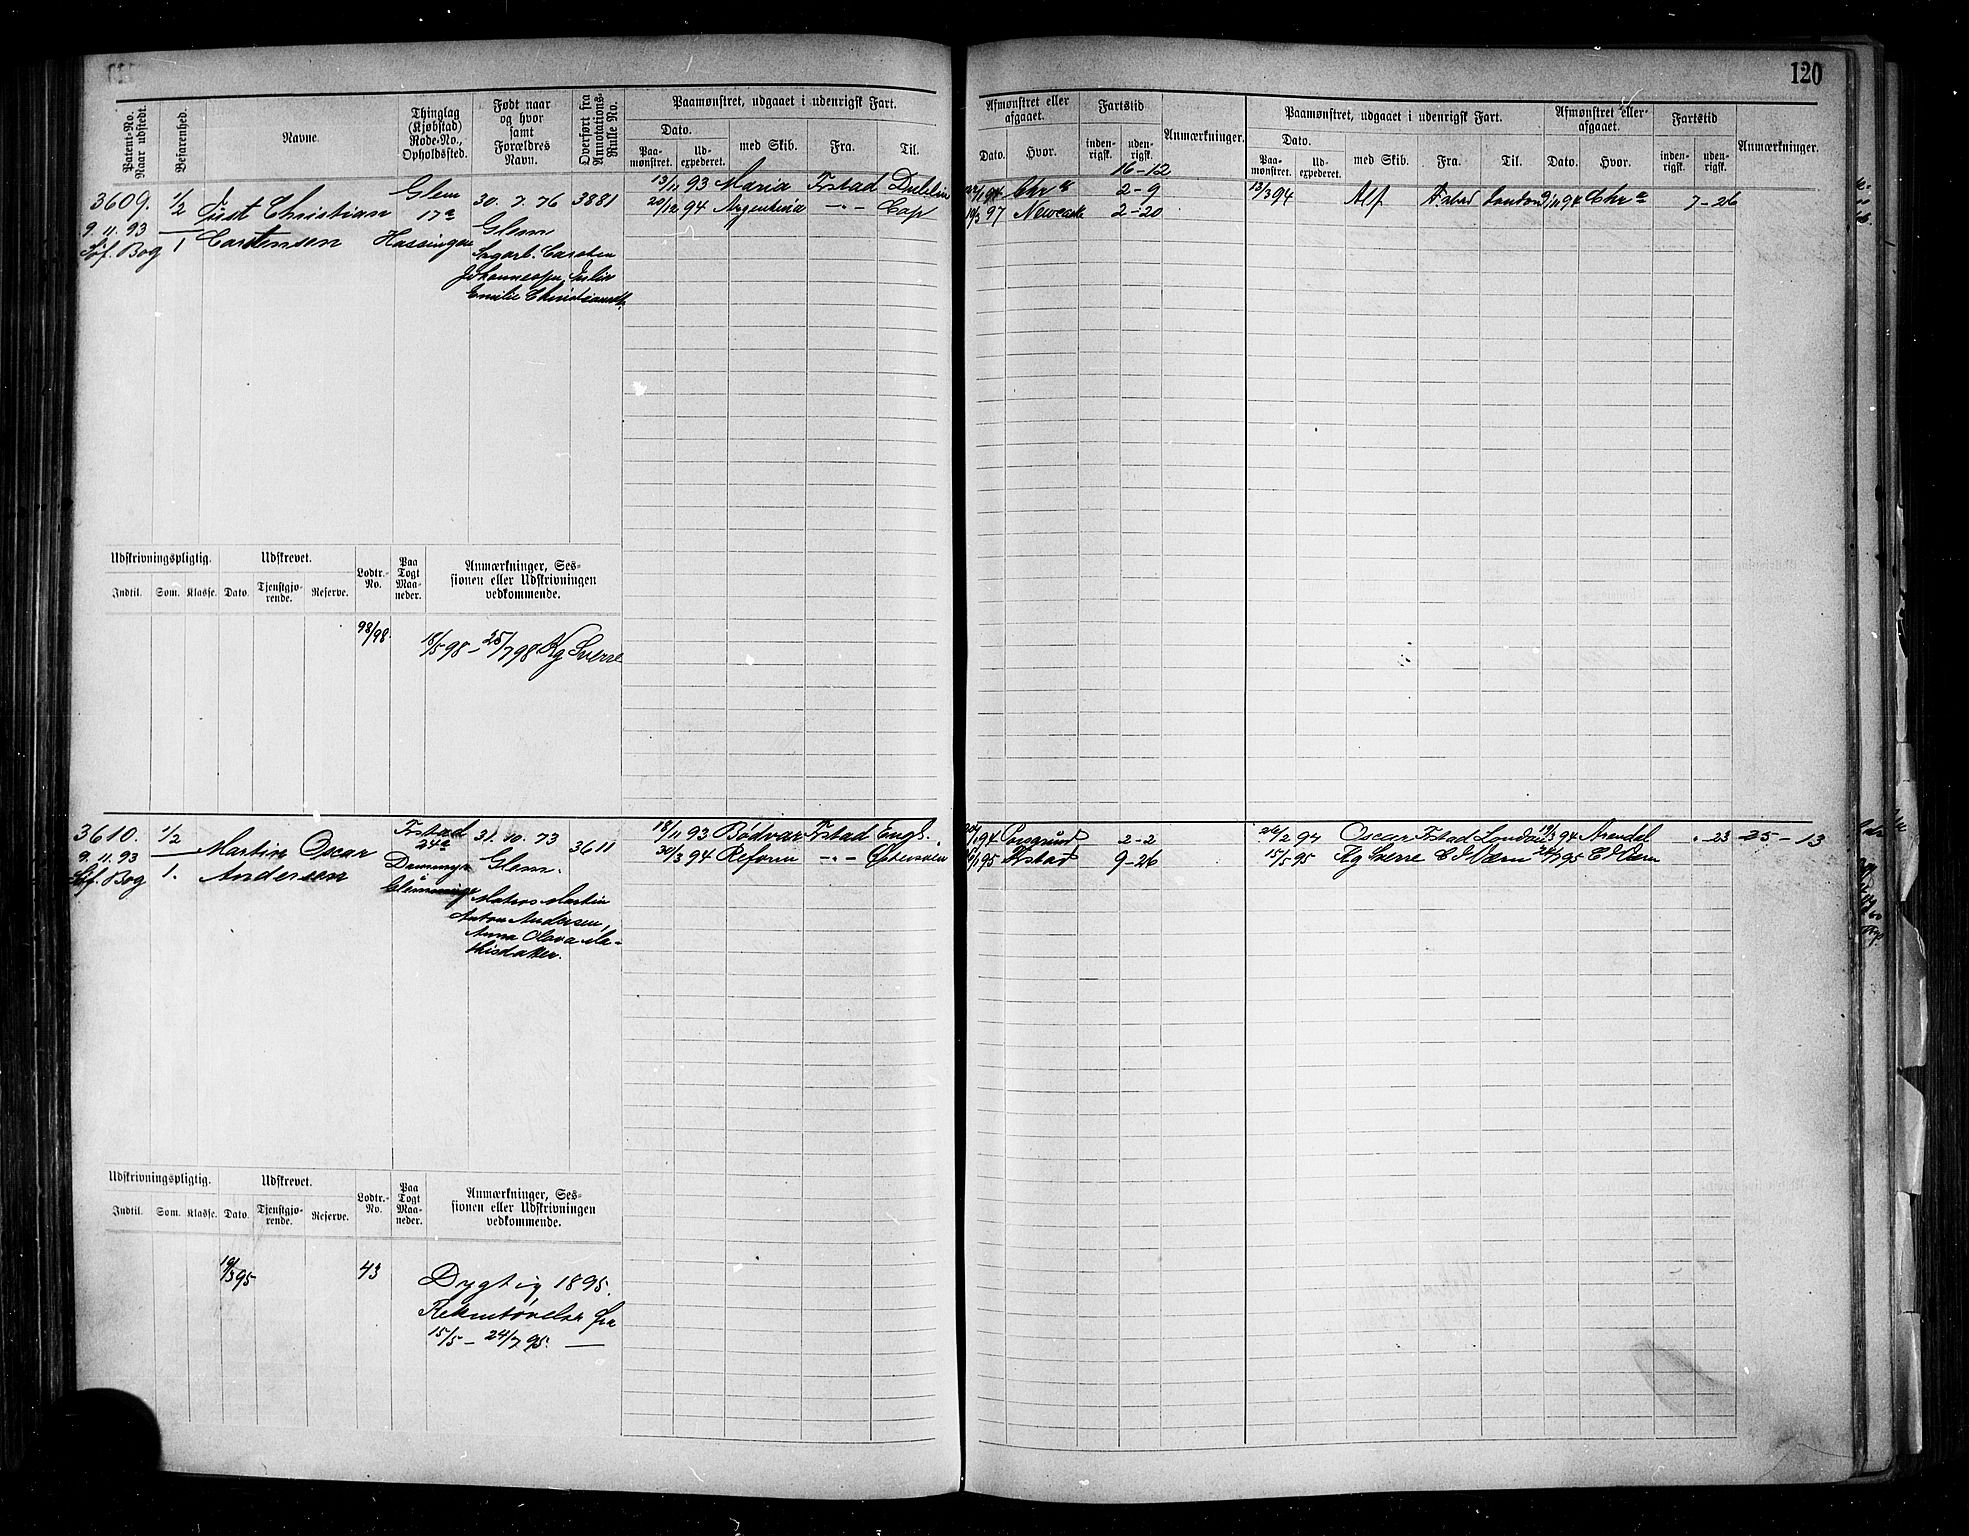 120
Patent-No.
Naar udstedt.
Befarenhed.
Navne.
Thinglag
(Kjøbstad)
Rode-No.,
Opholdssted.
Født naar
og hvor
samt
Forældres
Navn.
Overført fra
Annotations-
Rulle No.
Paamønstret, udgaaet i udenrigsk Fart.
Dato.
Paa-
mønstret.
Ud-
expederet.
med Skib.
Fra.
Til.
Afmønstret eller
afgaaet.
Dato.
Hvor.
Fartstid
inden-
rigsk.
uden-
rigsk.
Anmærkninger.
Paamønstret, udgaaet i udenrigsk Fart.
Dato.
Paa-
mønstret.
Ud-
expederet.
med Skib.
Fra.
Til.
Afmønstret eller
afgaaet.
Dato.
Hvor.
Fartstid
inden-
rigsk.
uden-
rigsk.
Anmærkninger.
16-12
3609.
9.11.93
Søf. Bog
1/2
1
Just Christian
Carstensen
Glem
17a
Hassingen
30.7.76
Glem
Carsten
Johannesen, Julie
Emilie
3881
13/11 93 Maria Frstad Dublin
20/12 94 Argentina -"- Cap
94 Chra 2-9
97 Newcastle 2-20
13/3 94 Alf Frstad London 94 Chra 7-26
Udskrivningspligtig.
Udskrevet.
Indtil.
Rom.
Klasse.
Dato.
Tjenstgjø-
rende.
Reserve.
Lodtr.-
No.
Paa
Togt
Maa-
neder.
Anmærkninger, Ses-
sionen eller Udskrivningen
vedkommende.
98/98
18/5 98 - 25/7 98 Kg Sverre
3610.
9.11.93
Søf. Bog
1/2
1.
Martin Oscar
Andersen
Frstad
24a
31.10.73
Glem.
Matros Martin
Anton Andersen,
Anna Olava Ma-
thisdatter.
3611
18/11 93 Bødvar Frstad Engl.
30/3 94 Reform -"- Østersøen
94 Porsgrund 2-2
95 Frstad 9-26
26/2 94 Oscar Frstad London 94 Arendal "-23 25-13
15/5 95 Kg Sverre C J Værn 24/7 95 C J Værn
Udskrivningspligtig.
Udskrevet.
Indtil.
Som.
Klasse.
Dato.
Tjenstgjø-
rende.
Reserve.
Lodtr.-
No.
Paa
Togt
Maa-
neder.
Anmærkninger, Ses-
sionen eller Udskrivningen
vedkommende.
19/3 95
43
Dygtig 1895.
Rekrutøvelse fra
15/5 - 24/7 95.